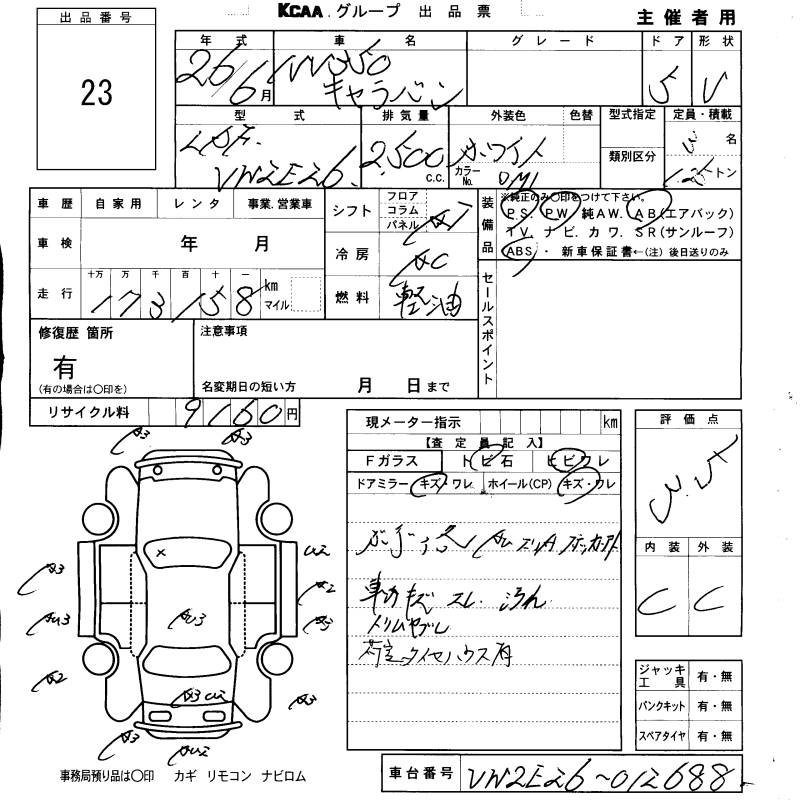 KCAA グループ 出品票
主催者用
出品番号
23
年式 車名 グレード ドア 形状
26/6月 NV350 キャラバン 5 V
型式 排気量 外装色 色替 型式指定 定員・積載
LDF- VW2E26 2,500 C.C. ホワイト カラーNo. 類別区分 名
1.25トン
車歴 自家用 レンタ 事業.営業車
シフト フロア コラム パネル AT
装備品
※純正のみ〇印をつけて下さい。
PS. PW 純AW. AB(エアバック)
TV. ナビ. カワ. SR(サンルーフ)
ABS ・ 新車保証書←(注) 後日送りのみ
車検 年 月
冷房 AC
走行 十万 万 千 百 十 一
173158 km マイル
燃料 軽油
セールスポイント
修復歴 箇所
有
(有の場合は〇印を)
注意事項
名変期日の短い方 月 日まで
リサイクル料 9160円
現メーター指示 km
【査定員記入】
Fガラス トビ石 ヒビワレ
ドアミラー キズ・ワレ ホイール(CP) キズ・ワレ
車内 キズ スレ 汚れ
トリムヤブレ
荷室タイヤハウス有
評価点
内装 外装
C C
A3 A3
A3 U2
A2
AU3 AU3 A3
A2
A3 U2 A3
A3 AU2
ジャッキ工具 有・無
パンクキット 有・無
スペアタイヤ 有・無
事務局預り品は〇印 カギ リモコン ナビロム
車台番号 VW2E26～012688